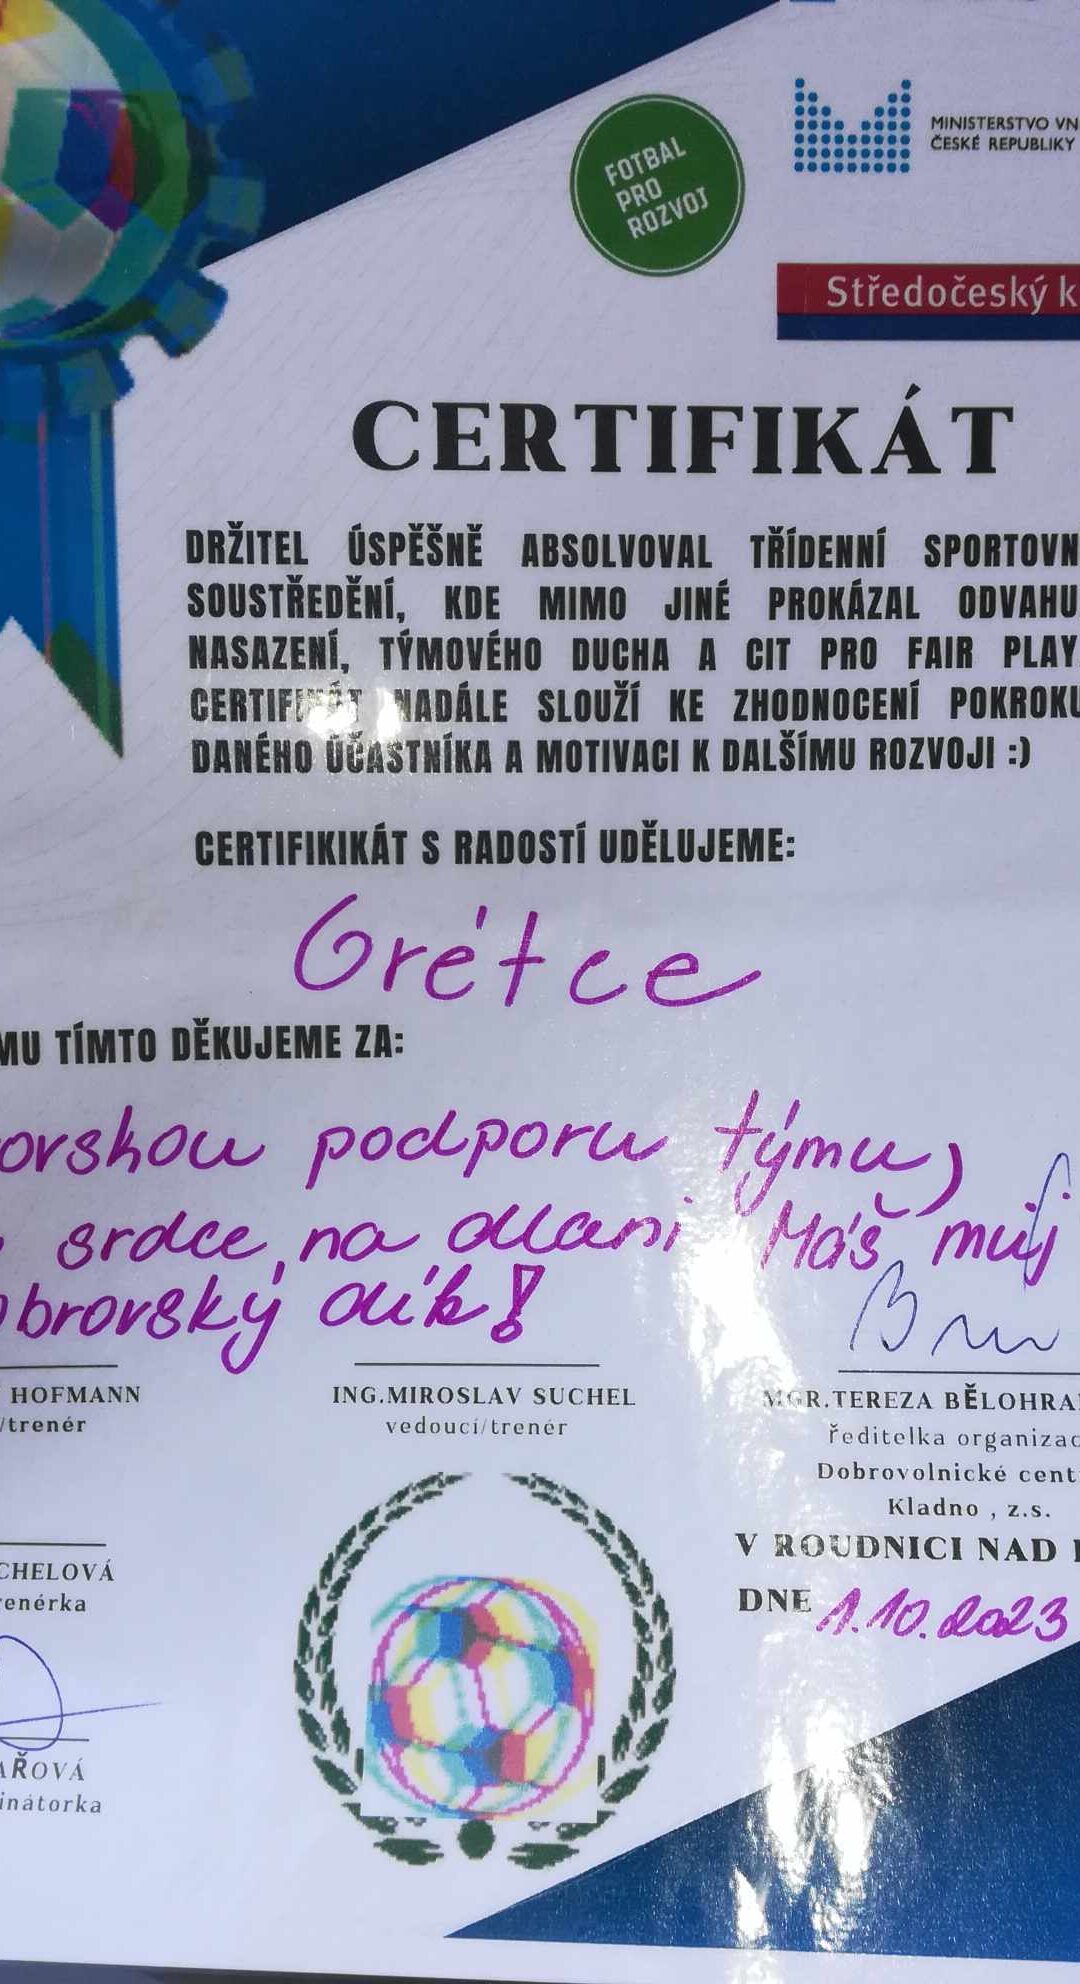 FOTBAL
PRO
ROZVOJ
MINISTERSTVO VN
ČESKÉ REPUBLIKY
Středočeský k
CERTIFIKÁT
DRŽITEL ÚSPĚŠNĚ ABSOLVOVAL TŘÍDENNÍ SPORTOVN
SOUSTŘEDĚNÍ, KDE MIMO JINÉ PROKÁZAL ODVAHU
NASAZENÍ, TÝMOVÉHO DUCHA A CIT PRO FAIR PLAY
CERTIFIKÁT NADÁLE SLOUŽÍ KE ZHODNOCENÍ POKROKU
DANÉHO ÚČASTNÍKA A MOTIVACI K DALŠÍMU ROZVOJI :)
CERTIFIKIKÁT S RADOSTÍ UDĚLUJEME:
Grétce
MU TÍMTO DĚKUJEME ZA:
ovskou podporu týmu,
srdce na dlani Máš můj
obrovský dík!
HOFMANN
/trenér
ING.MIROSLAV SUCHEL
vedoucí/trenér
MGR.TEREZA BĚLOHRA
ředitelka organizac
Dobrovolnické cent
Kladno , z.s.
CHELOVÁ
enérka
V ROUDNICI NAD
DNE 1.10.2023
AŘOVÁ
inátorka